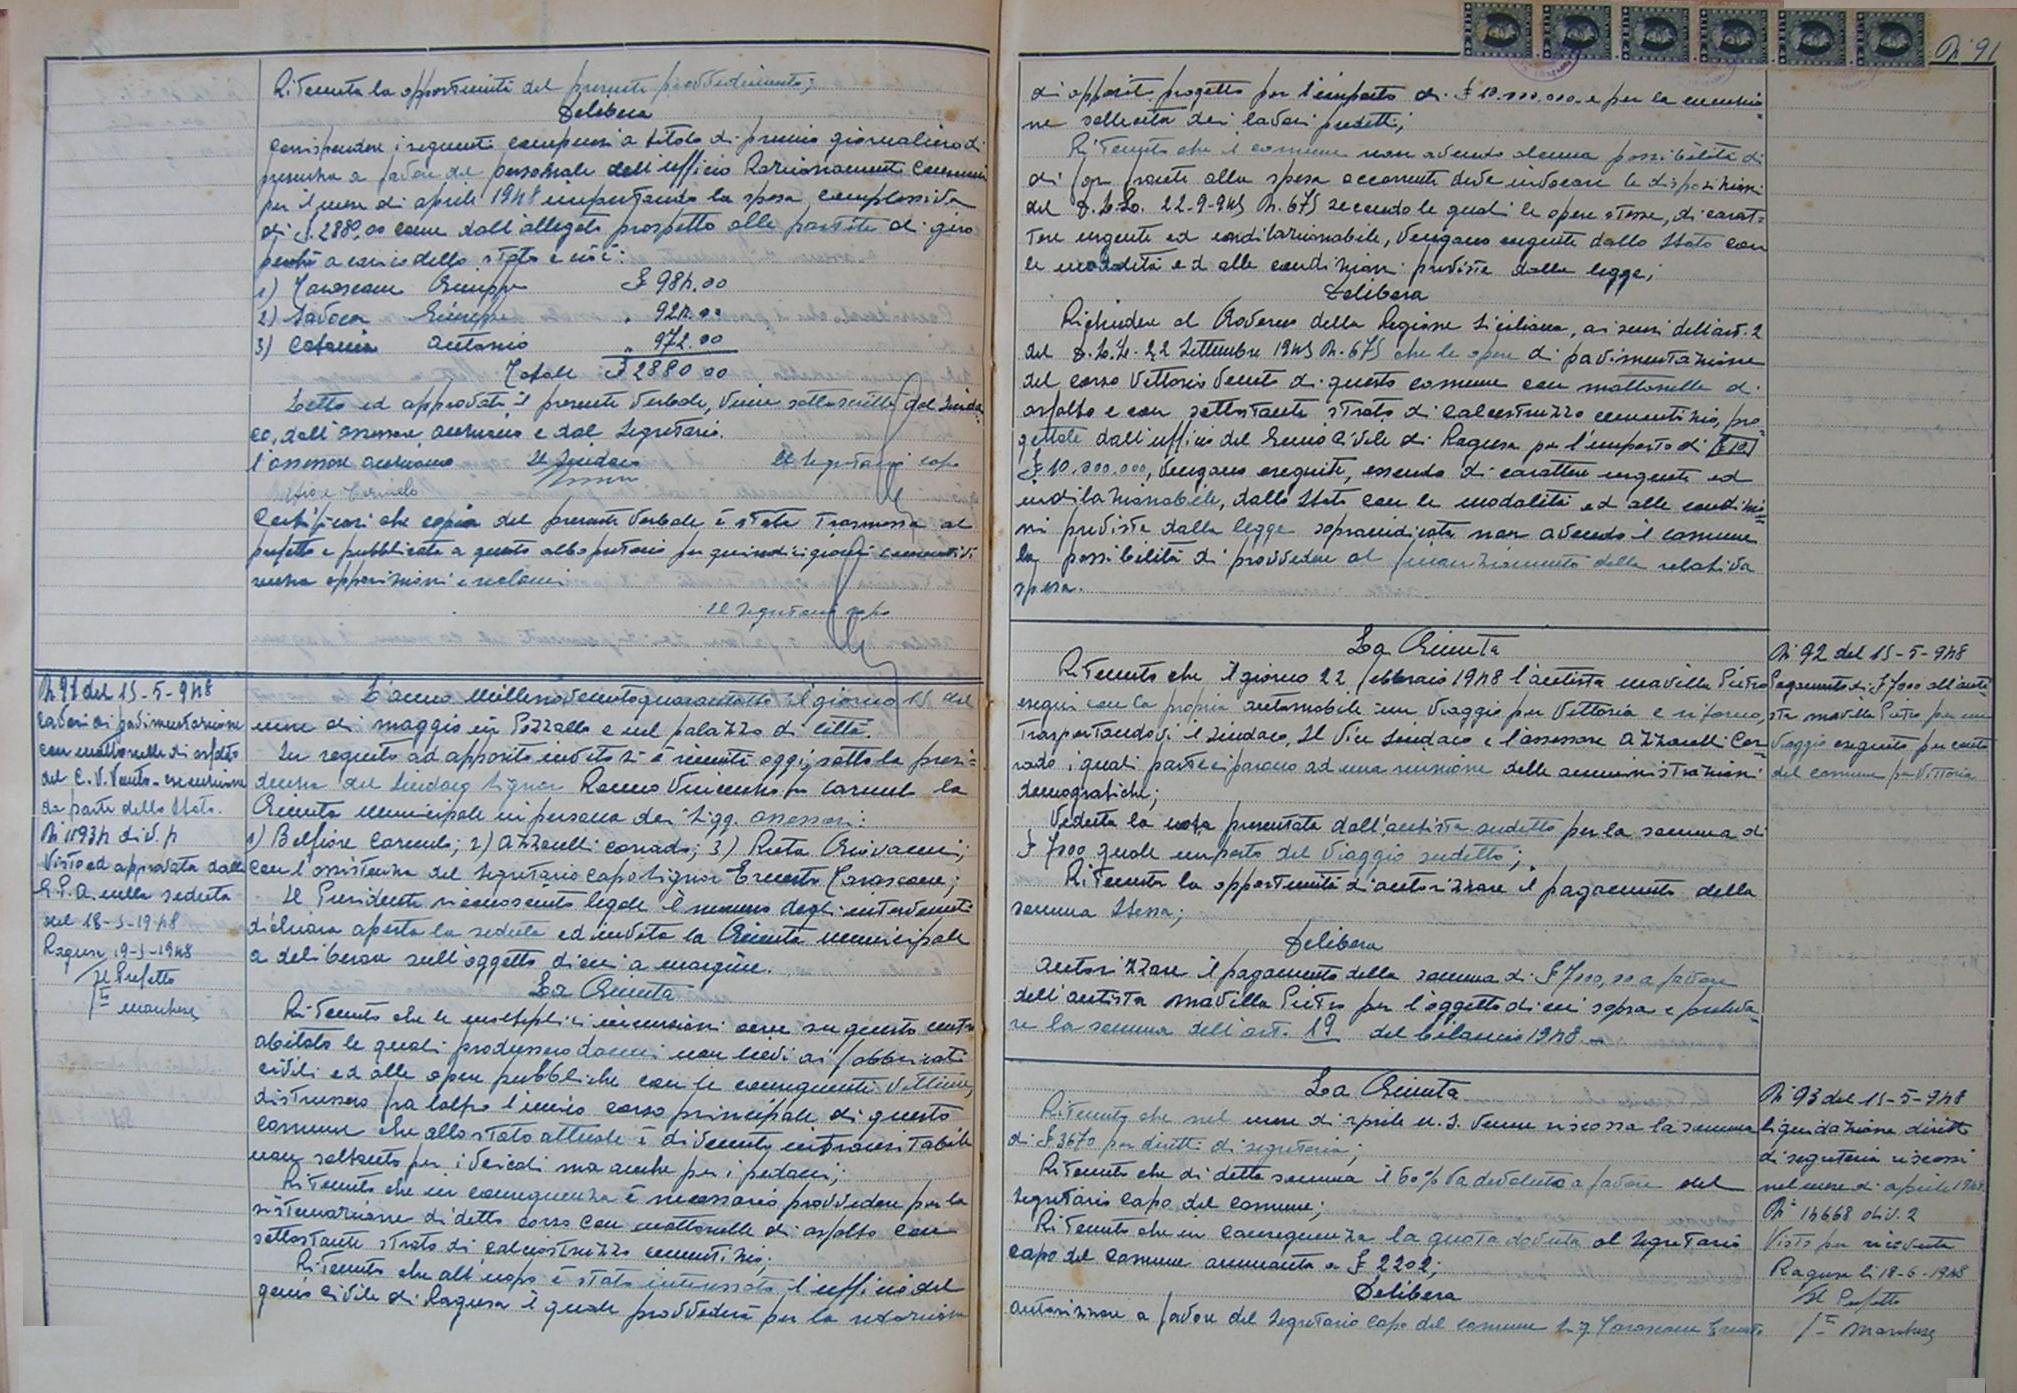 Ritenuta la opportunità del presente provvedimento;
Delibera
Corrispondere i seguenti compensi a titolo di premio giornaliero di
presenza a favore del personale dell'ufficio Razionamenti Consumi
per il mese di aprile 1948 importando la spesa complessiva
di £. 2880,00 come dall'allegato prospetto alle partite di giro
perchè a carico dello stato e cioè:
1) Tarascone Giuseppe £ 984.00
2) Savoca Giuseppe " 924.00
3) Catania Antonio " 972.00
Totale £ 2880 00
Letto ed approvato il presente verbale, viene sottoscritto dal Sinda
co, dall'assessore anziano e dal Segretario.
l'assessore anziano Il Sindaco Il Segretario capo
Belfiore Carmelo
Certificasi che copia del presente verbale è stata trasmessa al
prefetto e pubblicata a questo albo pretorio per quindici giorni consecutivi
senza opposizioni e reclami
Il Segretario capo
N. 91 del 15-5-948
Lavori di pavimentazione
con mattonelle di asfalto
del C. V. Veneto - esecuzione
da parte dello Stato.
N. 11934 div. 4
Visto ed approvata dalla
G.P.A. nella seduta
del 18-5-1948
Ragusa, 19-5-1948
Il Prefetto
Fto Marchese
L'anno millenovecentoquarantotto il giorno 15 del
mese di maggio in Pozzallo e nel palazzo di città.
In seguito ad apposito invito si è riunita oggi, sotto la presi=
denza del Sindaco Signor Rosso Vincenzo fu Carmelo la
Giunta Municipale in persona dei Sigg. assessori:
1) Belfiore Carmelo; 2) Azzarelli Corrado; 3) Ruta Giovanni;
con l'assistenza del Segretario Capo Signor Ernesto Tarascone;
Il Presidente riconosciuto legale il numero degli intervenuti
dichiara aperta la seduta ed invita la Giunta Municipale
a deliberare sull'oggetto di cui a margine.
La Giunta
Ritenuto che le molteplici incursioni aeree su questo centro
abitato le quali produssero danni non lievi ai fabbricati
civili ed alle opere pubbliche con le conseguenti vittime,
distrussero fra l'altro l'unico corso principale di questo
comune che allo stato attuale è divenuto intransitabile
non soltanto per i veicoli ma anche per i pedoni;
Ritenuto che in conseguenza è necessario provvedere per la
sistemazione di detto corso con mattonelle di asfalto con
sottostante strato di calcestruzzo cementizio.
Ritenuto che all'uopo è stato interessato l'ufficio del
genio Civile di Ragusa il quale provvederà per la redazione
N. 91
di apposito progetto per l'importo di £ 10.000.000. e per la esecuzio
ne sollecita dei lavori predetti;
Ritenuto che il comune non avendo alcuna possibilità di
di far fronte alla spesa occorrente deve invocare le disposizioni
del D.L.L. 22-9-945 N. 675 secondo le quali le opere stesse, di carat=
tere urgente ed indilazionabile, vengano eseguite dallo Stato con
le modalità ed alle condizioni previste dalla legge;
Delibera
Richiedere al Governo della Regione Siciliana, ai sensi dell'art. 2
del D.L.L. 22 Settembre 1945 N. 675 che le opere di pavimentazione
del corso Vittorio Veneto di questo comune con mattonelle di
asfalto e con sottostante strato di calcestruzzo cementizio, pro=
gettate dall'ufficio del Genio Civile di Ragusa per l'importo di [£ 10]
£ 10.000.000, vengano eseguite, essendo di carattere urgente ed
indilazionabile, dallo Stato con le modalità ed alle condizio=
ni previste dalla legge sopraindicata non avendo il comune
la possibilità di provvedere al finanziamento della relativa
spesa.
La Giunta
Ritenuto che il giorno 22 febbraio 1948 l'autista Mavilla Pietro
eseguì con la propria automobile un viaggio per Vittoria e ritorno,
trasportandovi il Sindaco, Il Vice Sindaco e l'assessore Azzarelli Cor
rado, i quali parteciparono ad una riunione delle amministrazioni
demografiche;
Veduta la nota presentata dall'autista sudetto per la somma di
£ 7000 quale importo del viaggio sudetto;
Ritenuta la opportunità di autorizzare il pagamento della
somma stessa;
Delibera
Autorizzare il pagamento della somma di £ 7000,00 a favore
dell'autista Mavilla Pietro per l'oggetto di cui sopra e preleva
re la somma dell'art. 19 del bilancio 1948.
N. 92 del 15-5-948
Pagamento di £ 7000 all'auti
sta Mavilla Pietro per un
viaggio eseguito per conto
del comune per Vittoria
La Giunta
Ritenuto che nel mese di aprile u. s. venne riscossa la somma
di £ 3670 per diritti di segreteria;
Ritenuto che di detta somma il 60% va devoluto a favore del
Segretario Capo del comune;
Ritenuto che in conseguenza la quota dovuta al Segretario
Capo del Comune ammonta a £ 2202;
Delibera
Autorizzare a favore del Segretario Capo del comune Sig. Tarascone Ernesto
N. 93 del 15-5-948
liquidazione diritti
di segreteria riscossi
nel mese di aprile 1948
N. 14668 div. 2
Visto per ricevuta
Ragusa lì 18-6-1948
Il Prefetto
Fto Marchese